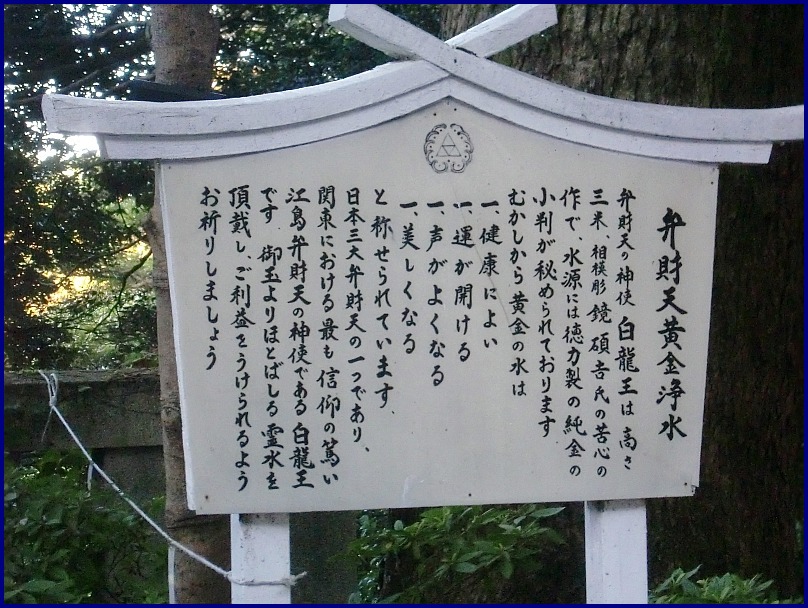 弁財天黄金浄水
弁財天の神使 白龍王は 高さ
三米 相模彫 鏡 碩吉氏の苦心の
作で、水源には徳力製の純金の
小判が秘められております
むかしから黄金の水は
一、健康によい
一、運が開ける
一、声がよくなる
一、美しくなる
と称せられています、
日本三大弁財天の一つであり、
関東における最も信仰の篤い
江島弁財天の神使である白龍王
です 御玉よりほとばしる霊水を
頂戴し、ご利益をうけられるよう
お祈りしましょう